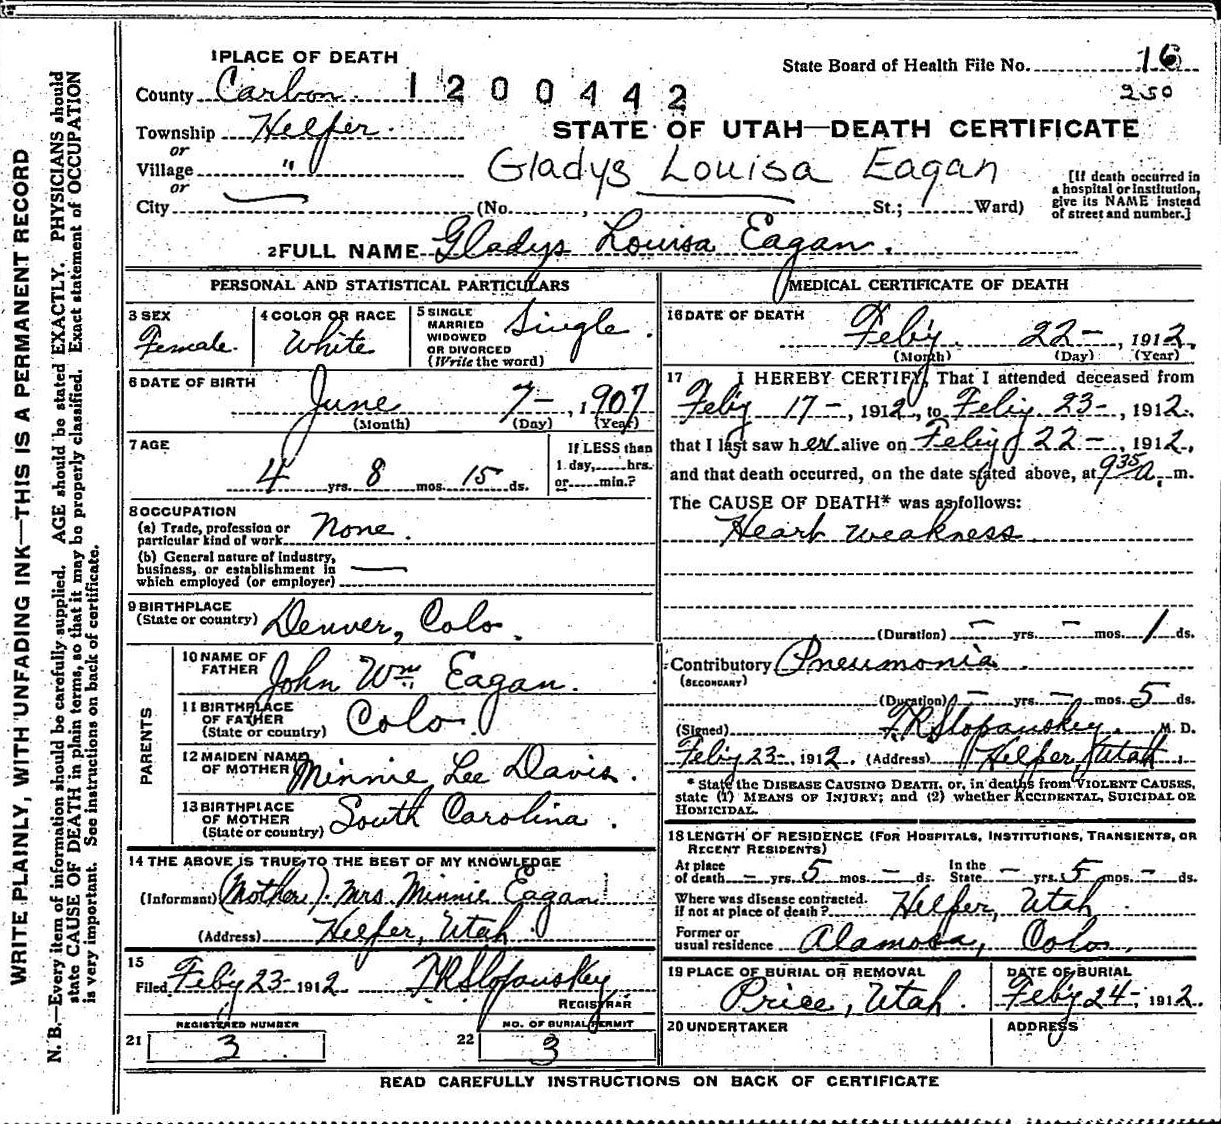 WRITE PLAINLY, WITH UNFADING INK—THIS IS A PERMANENT RECORD
N. B.—Every item of information should be carefully supplied. AGE should be stated EXACTLY. PHYSICIANS should
state CAUSE OF DEATH in plain terms, so that it may be properly classified. Exact statement of OCCUPATION
is very important. See instructions on back of certificate.
1 PLACE OF DEATH
State Board of Health File No. 16
250
County Carbon 1200442
Township Helper.
or
STATE OF UTAH—DEATH CERTIFICATE
Village "
or
Gladys Louisa Eagan
[If death occurred in
a hospital or institution,
give its NAME instead
of street and number.]
City (No. , St.; Ward)
2 FULL NAME Gladys Louisa Eagan.
PERSONAL AND STATISTICAL PARTICULARS
3 SEX
Female.
4 COLOR OR RACE
White
5 SINGLE
MARRIED
WIDOWED
OR DIVORCED
(Write the word)
Single.
6 DATE OF BIRTH
June 7-, 1907
(Month) (Day) (Year)
7 AGE
4 yrs. 8 mos. 15 ds.
If LESS than
1 day, hrs.
or min.?
8 OCCUPATION
(a) Trade, profession or
particular kind of work None.
(b) General nature of industry,
business, or establishment in
which employed (or employer) —
9 BIRTHPLACE
(State or country) Denver, Colo.
PARENTS
10 NAME OF
FATHER John Wm. Eagan.
11 BIRTHPLACE
OF FATHER
(State or country) Colo.
12 MAIDEN NAME
OF MOTHER Minnie Lee Davis.
13 BIRTHPLACE
OF MOTHER
(State or country) South Carolina.
14 THE ABOVE IS TRUE TO THE BEST OF MY KNOWLEDGE
(Informant) (Mother). Mrs. Minnie Eagan
(Address) Helper, Utah.
15
Filed Feb'y 23- 1912 F.R. Slopanskey,
REGISTRAR
REGISTERED NUMBER
21 3
NO. OF BURIAL PERMIT
22 3
MEDICAL CERTIFICATE OF DEATH
16 DATE OF DEATH
Feb'y. 22-, 1912.
(Month) (Day) (Year)
17 I HEREBY CERTIFY, That I attended deceased from
Feb'y 17-, 1912, to Feb'y 23-, 1912.,
that I last saw her alive on Feb'y 22-, 1912,
and that death occurred, on the date stated above, at 9 35 a. m.
The CAUSE OF DEATH* was as follows:
Heart weakness
(Duration) - yrs. - mos. 1 ds.
Contributory Pneumonia.
(SECONDARY)
(Duration) - yrs. - mos. 5 ds.
(Signed) F.R. Slopanskey. M. D.
Feb'y 23-, 1912. (Address) Helper, Utah.
* State the DISEASE CAUSING DEATH, or, in deaths from VIOLENT CAUSES,
state (1) MEANS OF INJURY; and (2) whether ACCIDENTAL, SUICIDAL OR
HOMICIDAL.
18 LENGTH OF RESIDENCE (FOR HOSPITALS, INSTITUTIONS, TRANSIENTS, OR
RECENT RESIDENTS)
At place
of death - yrs. 5 mos. - ds.
In the
State - yrs. 5 mos. - ds.
Where was disease contracted.
if not at place of death? Helper, Utah.
Former or
usual residence Alamosa, Colo.
19 PLACE OF BURIAL OR REMOVAL
Price, Utah.
DATE OF BURIAL
Feb'y 24-, 1912.
20 UNDERTAKER
ADDRESS
READ CAREFULLY INSTRUCTIONS ON BACK OF CERTIFICATE